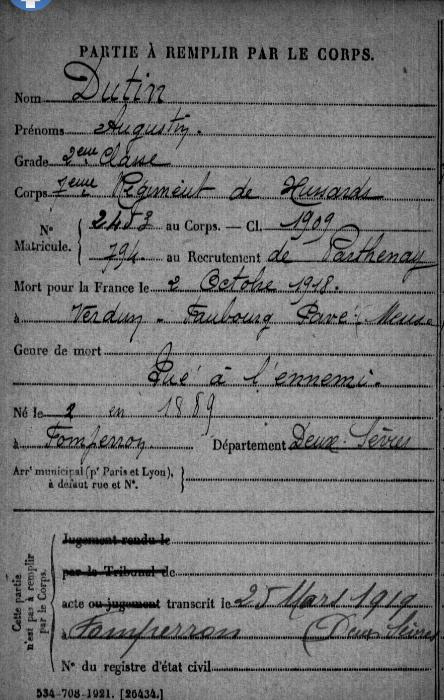 PARTIE À REMPLIR PAR LE CORPS.
Nom Dutin
Prénoms Augustin.
Grade 2eme Classe
Corps 7eme Régiment de Hussards
N° Matricule. { 2483 au Corps. — Cl. 1909
794 au Recrutement de Parthenay
Mort pour la France le 2 Octobre 1918.
à Verdun - Faubourg Pavé (Meuse
Genre de mort
Tué à l'ennemi.
Né le 2 en 1889
à Fomperron Département Deux-Sèvres
Arrt municipal (pr Paris et Lyon), à défaut rue et N°. }
Cette partie n'est pas à remplir par le Corps.
Jugement rendu le
par le Tribunal de
acte ou jugement transcrit le 25 Mars 1919
à Fomperron (Deux Sèvres
N° du registre d'état civil
534-708-1921. [26434.]